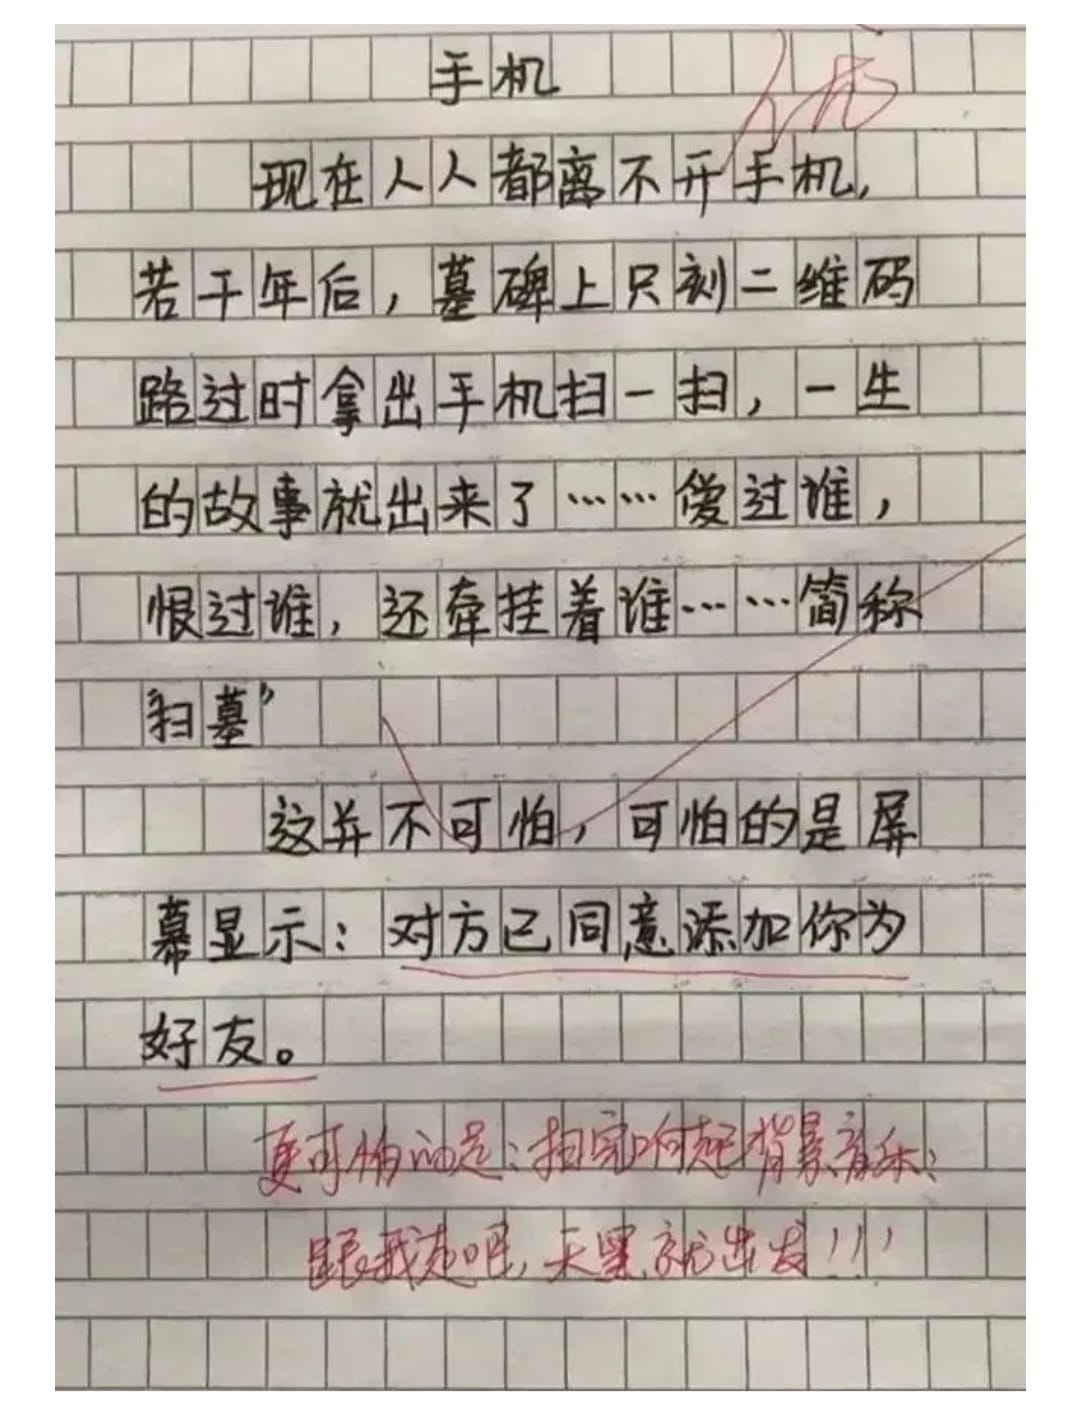 手机
优
现在人人都离不开手机,
若干年后,墓碑上只刻二维码
路过时拿出手机扫一扫,一生
的故事就出来了……爱过谁,
恨过谁,还牵挂着谁……简称
“扫墓”
这并不可怕,可怕的是屏
幕显示:对方已同意添加你为
好友。
更可怕的是:扫完响起背景音乐:
跟我走吧,天黑就出发!!!